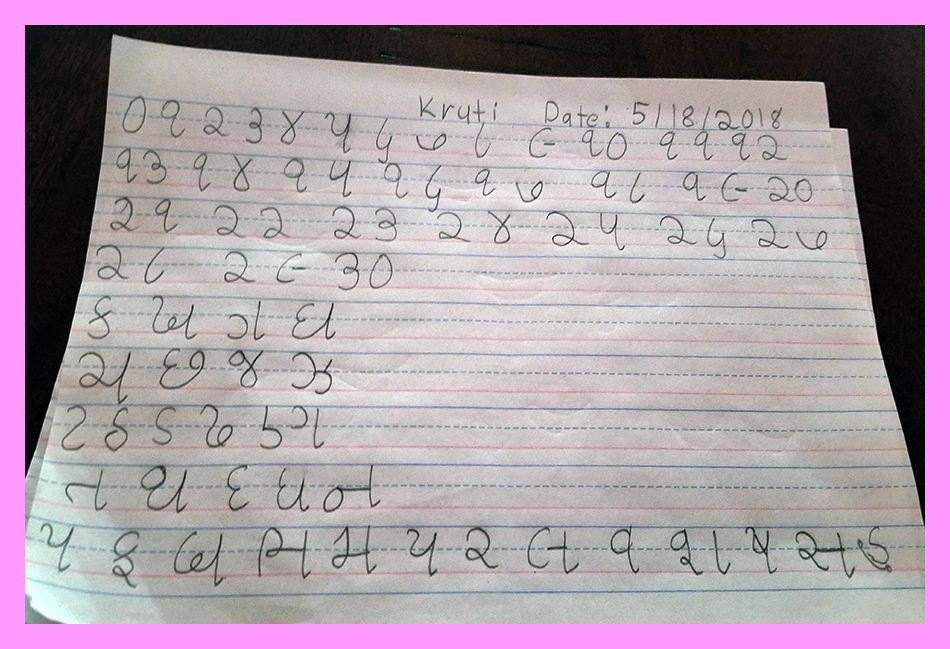 Kruti Date: 5/18/2018
૦ ૧ ૨ ૩ ૪ ૫ ૬ ૭ ૮ ૯ ૧૦ ૧૧ ૧૨
૧૩ ૧૪ ૧૫ ૧૬ ૧૭ ૧૮ ૧૯ ૨૦
૨૧ ૨૨ ૨૩ ૨૪ ૨૫ ૨૬ ૨૭
૨૮ ૨૯ ૩૦
ક ખ ગ ઘ
ચ છ જ ઝ
ટ ઠ ડ ઢ ણ
ત થ દ ધ ન
પ ફ બ ભ મ ય ર લ વ શ ષ સ હ